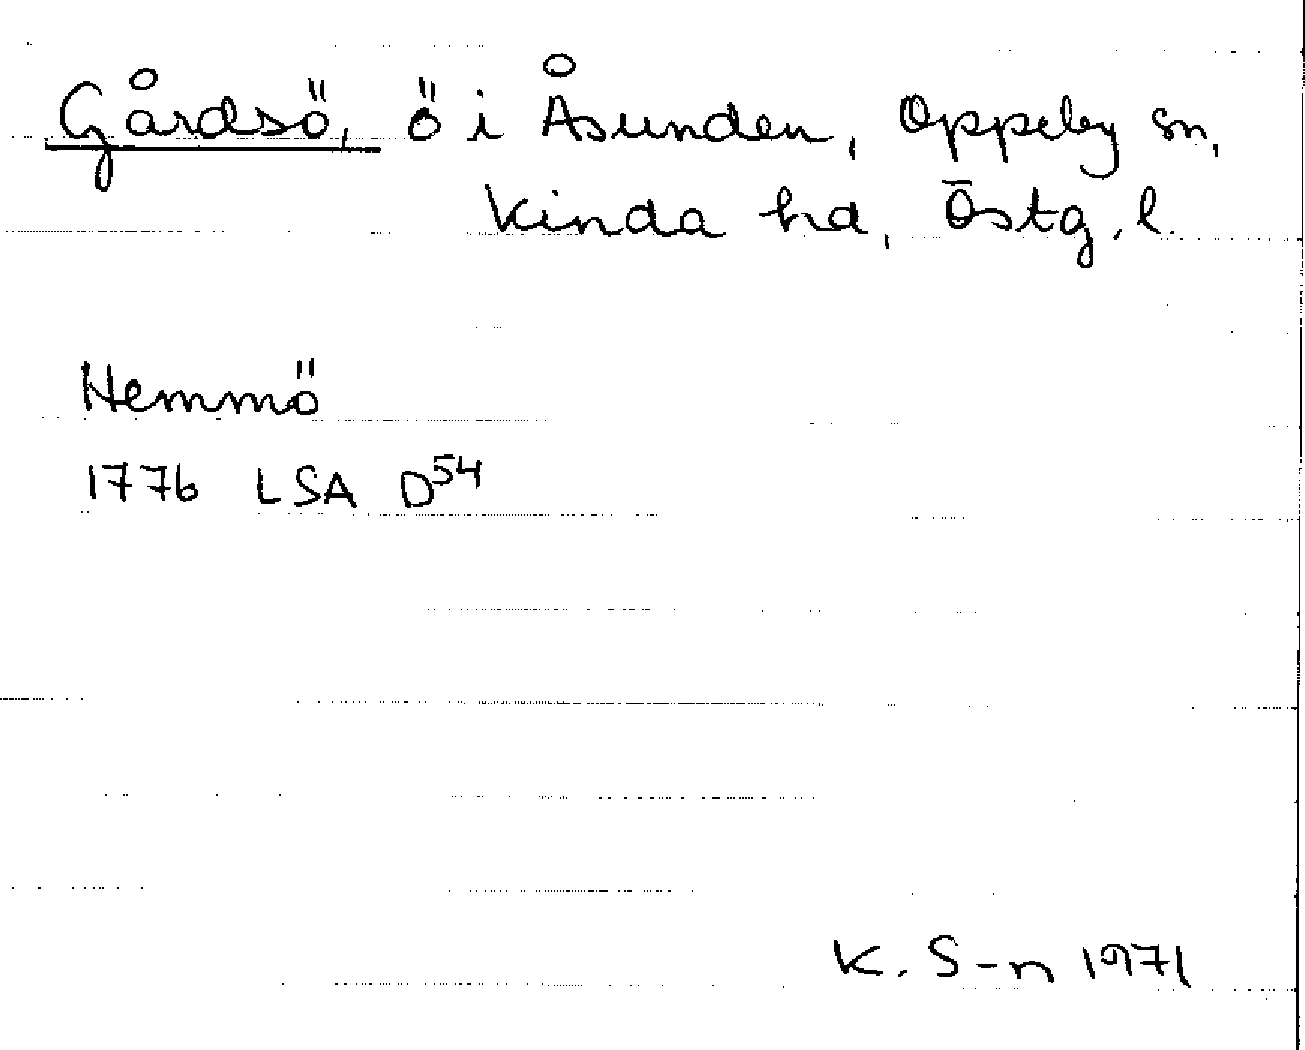 Gårdsö, ö i Åsunden, Oppeby sn,
Kinda hd, Östg. l.
Hemmö
1776 LSA D⁵⁴
K. S-n 1971